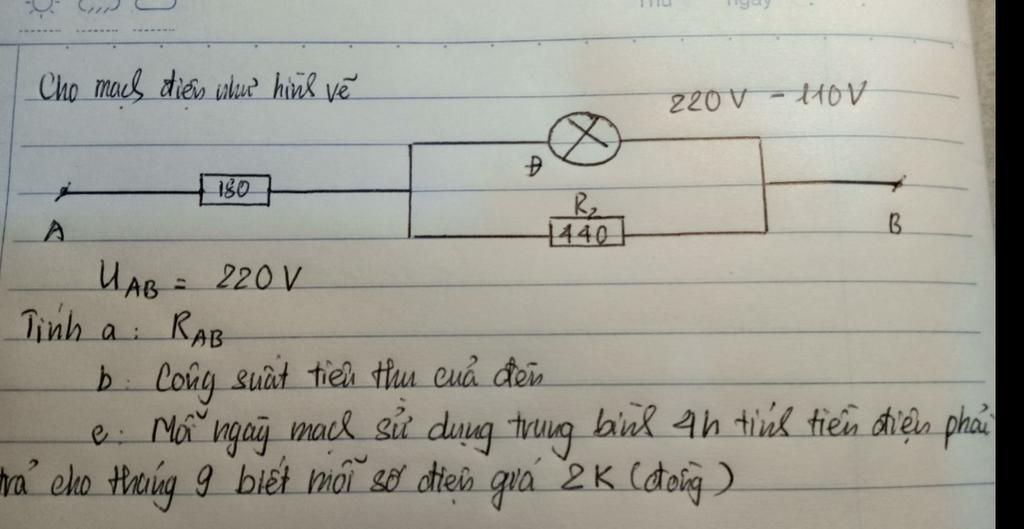 Thứ ngày
Cho mạch điện như hình vẽ
220V - 110V
Đ
180
R2
440
A
B
UAB = 220V
Tính a: RAB
b: Công suất tiêu thụ của đèn
c: Mỗi ngày mạch sử dụng trung bình 4h tính tiền điện phải
trả cho tháng 9 biết mỗi số điện giá 2K (đồng)